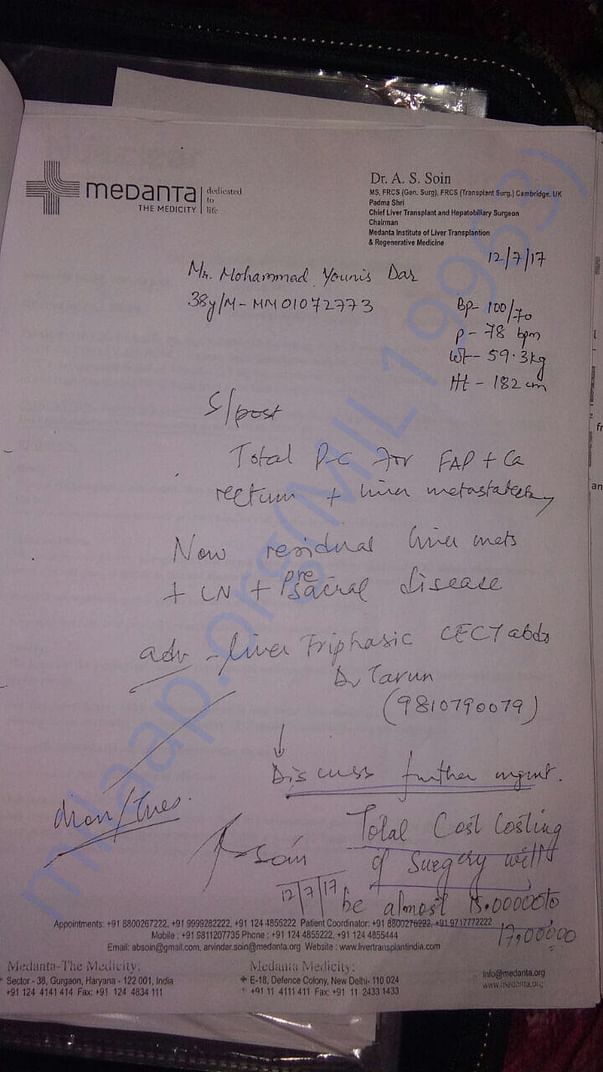 medanta
THE MEDICITY
dedicated
to
life
Dr. A. S. Soin
MS, FRCS (Gen. Surg), FRCS (Transplant Surg.) Cambridge, UK
Padma Shri
Chief Liver Transplant and Hepatobiliary Surgeon
Chairman
Medanta Institute of Liver Transplantion
& Regenerative Medicine
12/7/17
Mr. Mohammad Younis Dar
38y/M - MM01072773
Bp- 100/70
p- 78 bpm
Wt- 59.3kg
Ht - 182 cm
S/post
Total P-C for FAP + Ca
rectum + liver metastatectomy
Now residual liver mets
+ LN + pre sacral disease
adv - liver Triphasic CECT abdo
Dr Tarun
(9810790079)
Discuss further mgmt.
Mon/Tues.
Soin
12/7/17
Total Cost Costing
of Surgery will
be almost 15.00000 to
17,00000
Appointments: +91 8800267222, +91 9999282222, +91 124 4855222 Patient Coordinator: +91 8800276222, +91 9717772222
Mobile : +91 9811207735 Phone : +91 124 4855222, +91 124 4855444
Email: absoin@gmail.com, arvinder.soin@medanta.org Website : www.livertransplantindia.com
Medanta-The Medicity:
Sector - 38, Gurgaon, Haryana - 122 001, India
+91 124 4141 414 Fax: +91 124 4834 111
Medanta Medicity:
E-18, Defence Colony, New Delhi- 110 024
+91 11 4111 411 Fax: +91 11 2433 1433
info@medanta.org
www.medanta.org
milaap.org(MIL19963)